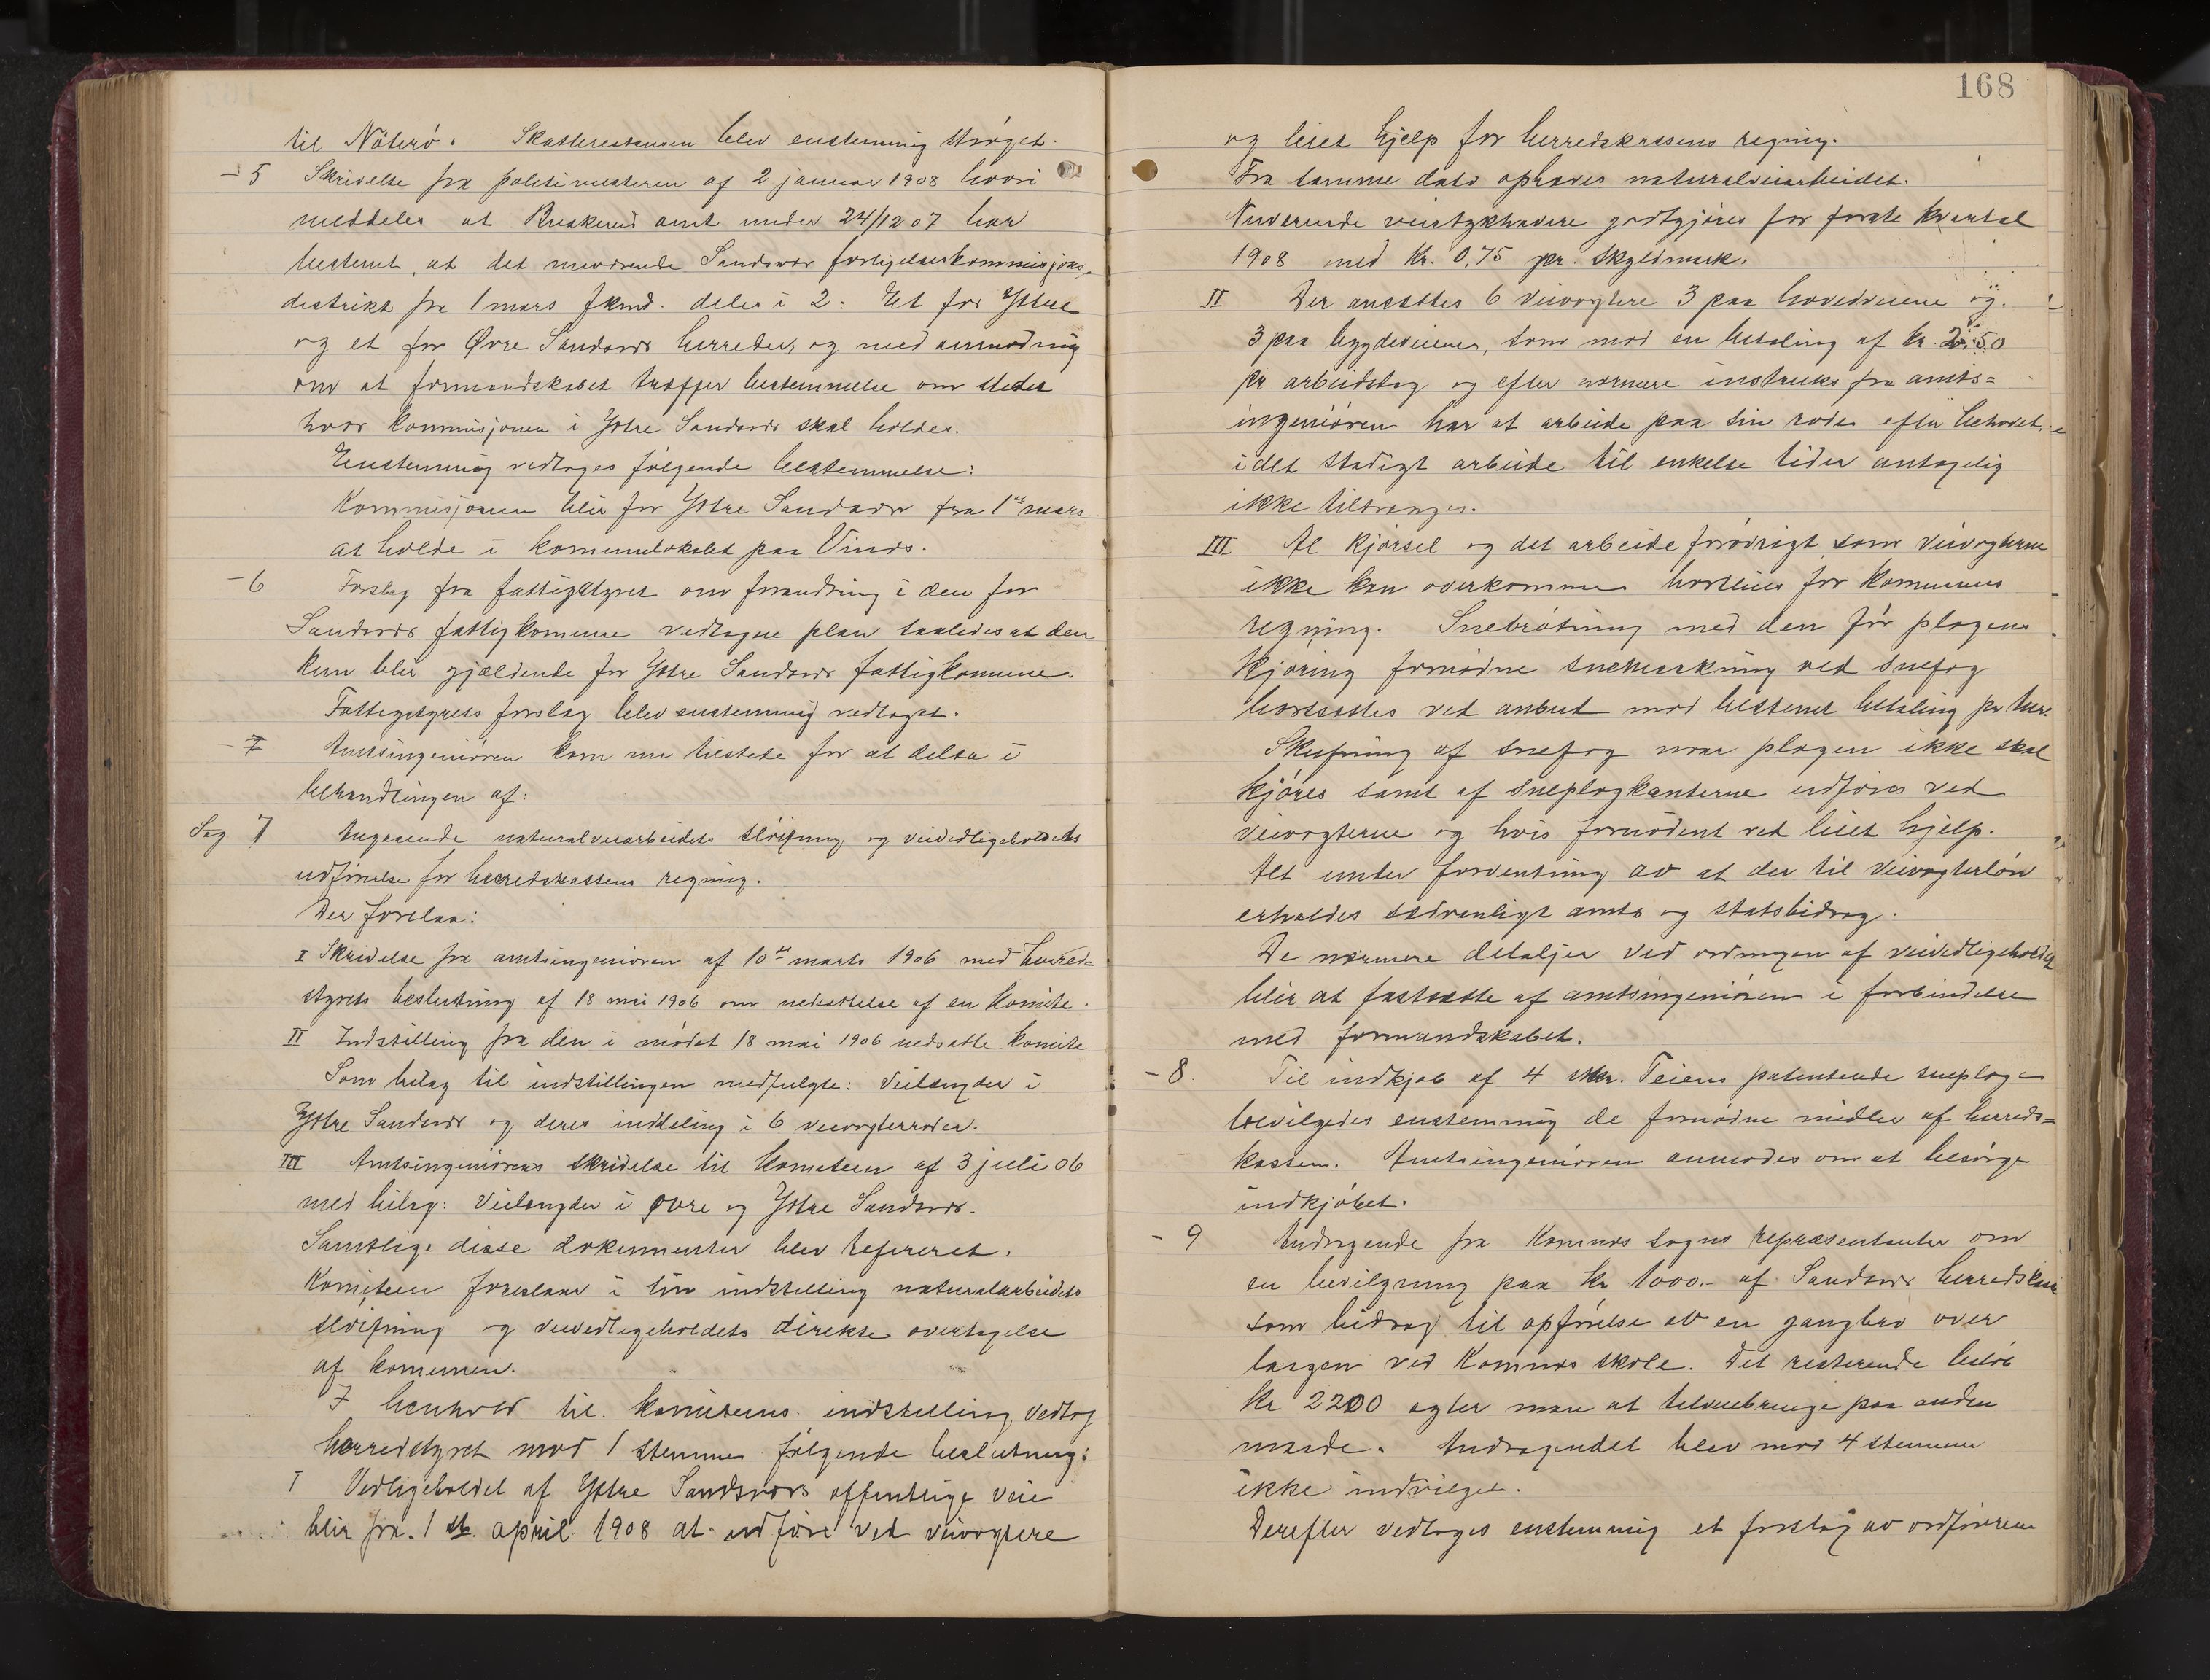 til Nøterø. Skatterestansen blev enstemmig strøget.
- 5 Skrivelse fra politimesteren af 2 januar 1908 hvori
meddeles at Buskerud amt under 24/12 07 har
bestemt, at det nuværende Sandsvær forligelseskommisjons-
distrikt fra 1 mars f kmd. deles i 2: Et for Ytre
og et for Øvre Sandsvær herreder, og med anmodning
om at formandskabet træffer bestemmelse om stedet
hvor kommisjonen i Ytre Sandsvær skal holdes.
Enstemmig vedtoges følgende bestemmelse:
Kommisjonen blir for Ytre Sandsvær fra 1ste mars
at holde i kommunelokalet paa Vinds.
- 6 Forslag fra fattigstyret om forandring i den for
Sandsvær fattigkomune vedtagne plan saaledes at den
kun blir gjældende for Ytre Sandsvær fattigkomune.
Fattigstyrets forslag blev enstemmig vedtaget.
- 7 Amtsingeniøren kom nu tilstede for at delta i
behandlingen af:
Sag 7 Angaaende naturalveiarbeidets sløifning og veivedligeholdets
udførelse for herredskassens regning.
Der forelaa:
I Skrivelse fra amtsingeniøren af 10de marts 1906 med herred-
styrets beslutning af 18 mai 1906 om nedsættelse af en komite.
II Indstilling fra den i mødet 18 mai 1906 nedsatte komite
Som bilag til indstillingen medfulgte: Veilængder i
Ytre Sandsvær og deres inddeling i 6 veivogterroder.
III Amtsingeniørens skrivelse til komiteen af 3 juli 06
med bilag: Veilængder i Øvre og Ytre Sandsvær.
Samtlige disse dokumenter blev refereret.
Komiteen foreslaar i sin indstilling naturalarbeidets
sløifning og veivedligeholdets direkte overtagelse
af komunen.
I henhold til komiteens indstilling vedtog
herredstyret mod 1 stemme følgende beslutning:
I Vedligeholdet af Ytre Sandsværs offentlige veie
blir fra 1ste april 1908 at udføre ved veivogtere
168
og leiet hjelp for herredskassens regning.
Fra samme dato ophæves naturalveiarbeidet.
Nuværende veistykhavere godtgjøres for første kvartal
1908 med Kr. 0,75 pr. skyldmark.
II Der ansættes 6 veivogtere 3 paa hovedveiene og
3 paa bygdeveiene, som mod en betaling af kr. 2.50
pr arbeidsdag og efter nærmere instruks fra amts=
ingeniøren har at arbeide paa sin rode efter behovet,
idet stadigt arbeide til enkelte tider antagelig
ikke tiltrænges.
III Al kjørsel og det arbeide forøvrigt som veivogterne
ikke kan overkomme bortleies for komunens
regning. Snebrøtning med den før plogens
kjøring fornødne snemerkning ved snefog
bortsættes ved anbud mod bestemt betaling pr
Skufning af snefog naar plogen ikke skal
kjøres samt af sneplogkanterne udføres ved
veivogterne og hvis fornødent ved leiet hjelp.
Alt under forventning av at der til veivogterløn
erholdes sædvanligt amts og statsbidrag.
De nærmere detaljer ved ordningen af veivedligeholdet
blir at fastsætte af amtsingeniøren i forbindelse
med formandskabet.
- 8. Til indkjøb af 4 stkr. Teiens patenterede sneploge
bevilgedes enstemmig de fornødne midler af herreds=
kassen. Amtsingeniøren anmodes om at besørge
indkjøbet.
- 9 Andragende fra Komnes sogns repræsentanter om
en bevilgning paa kr 1000.- af Sandsvær herredskasse
som bidrag til opførelse av en gangbro over
laagen ved Komnes skole. Det resterende beløb
kr 2200 agter man at tilveiebringe paa anden
maade. Andragendet blev mod 4 stemmer
ikke indvilget.
Derefter vedtoges enstemmig et forslag av ordføreren